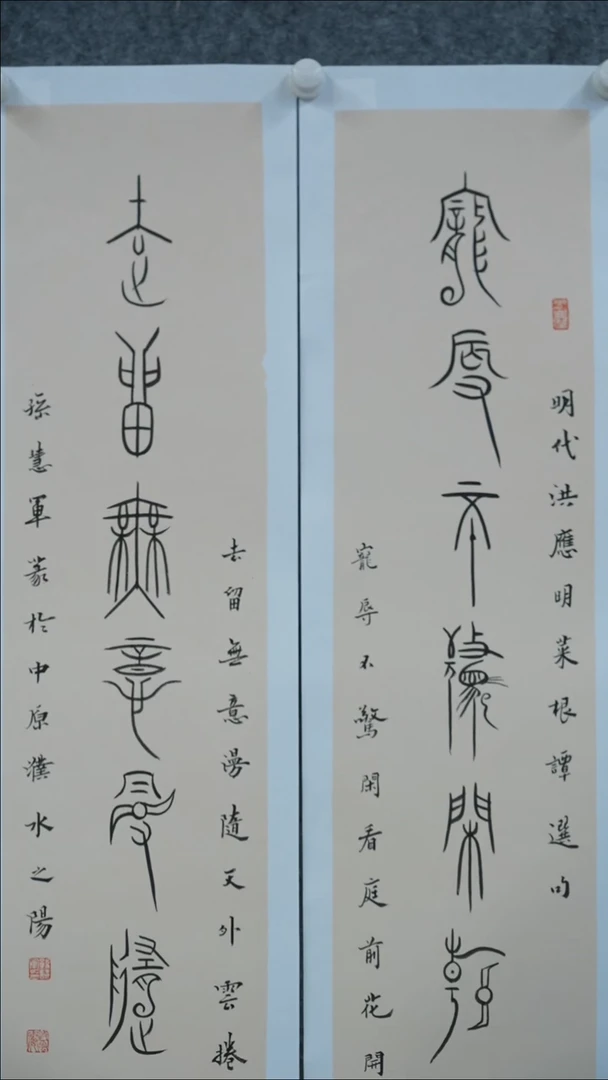 明代洪應明菜根譚選句
寵辱不驚閑看
寵辱不驚閑看庭前花開
去留無意漫隨天外雲捲
去留無意漫隨
孫慧軍篆於中原濮水之陽